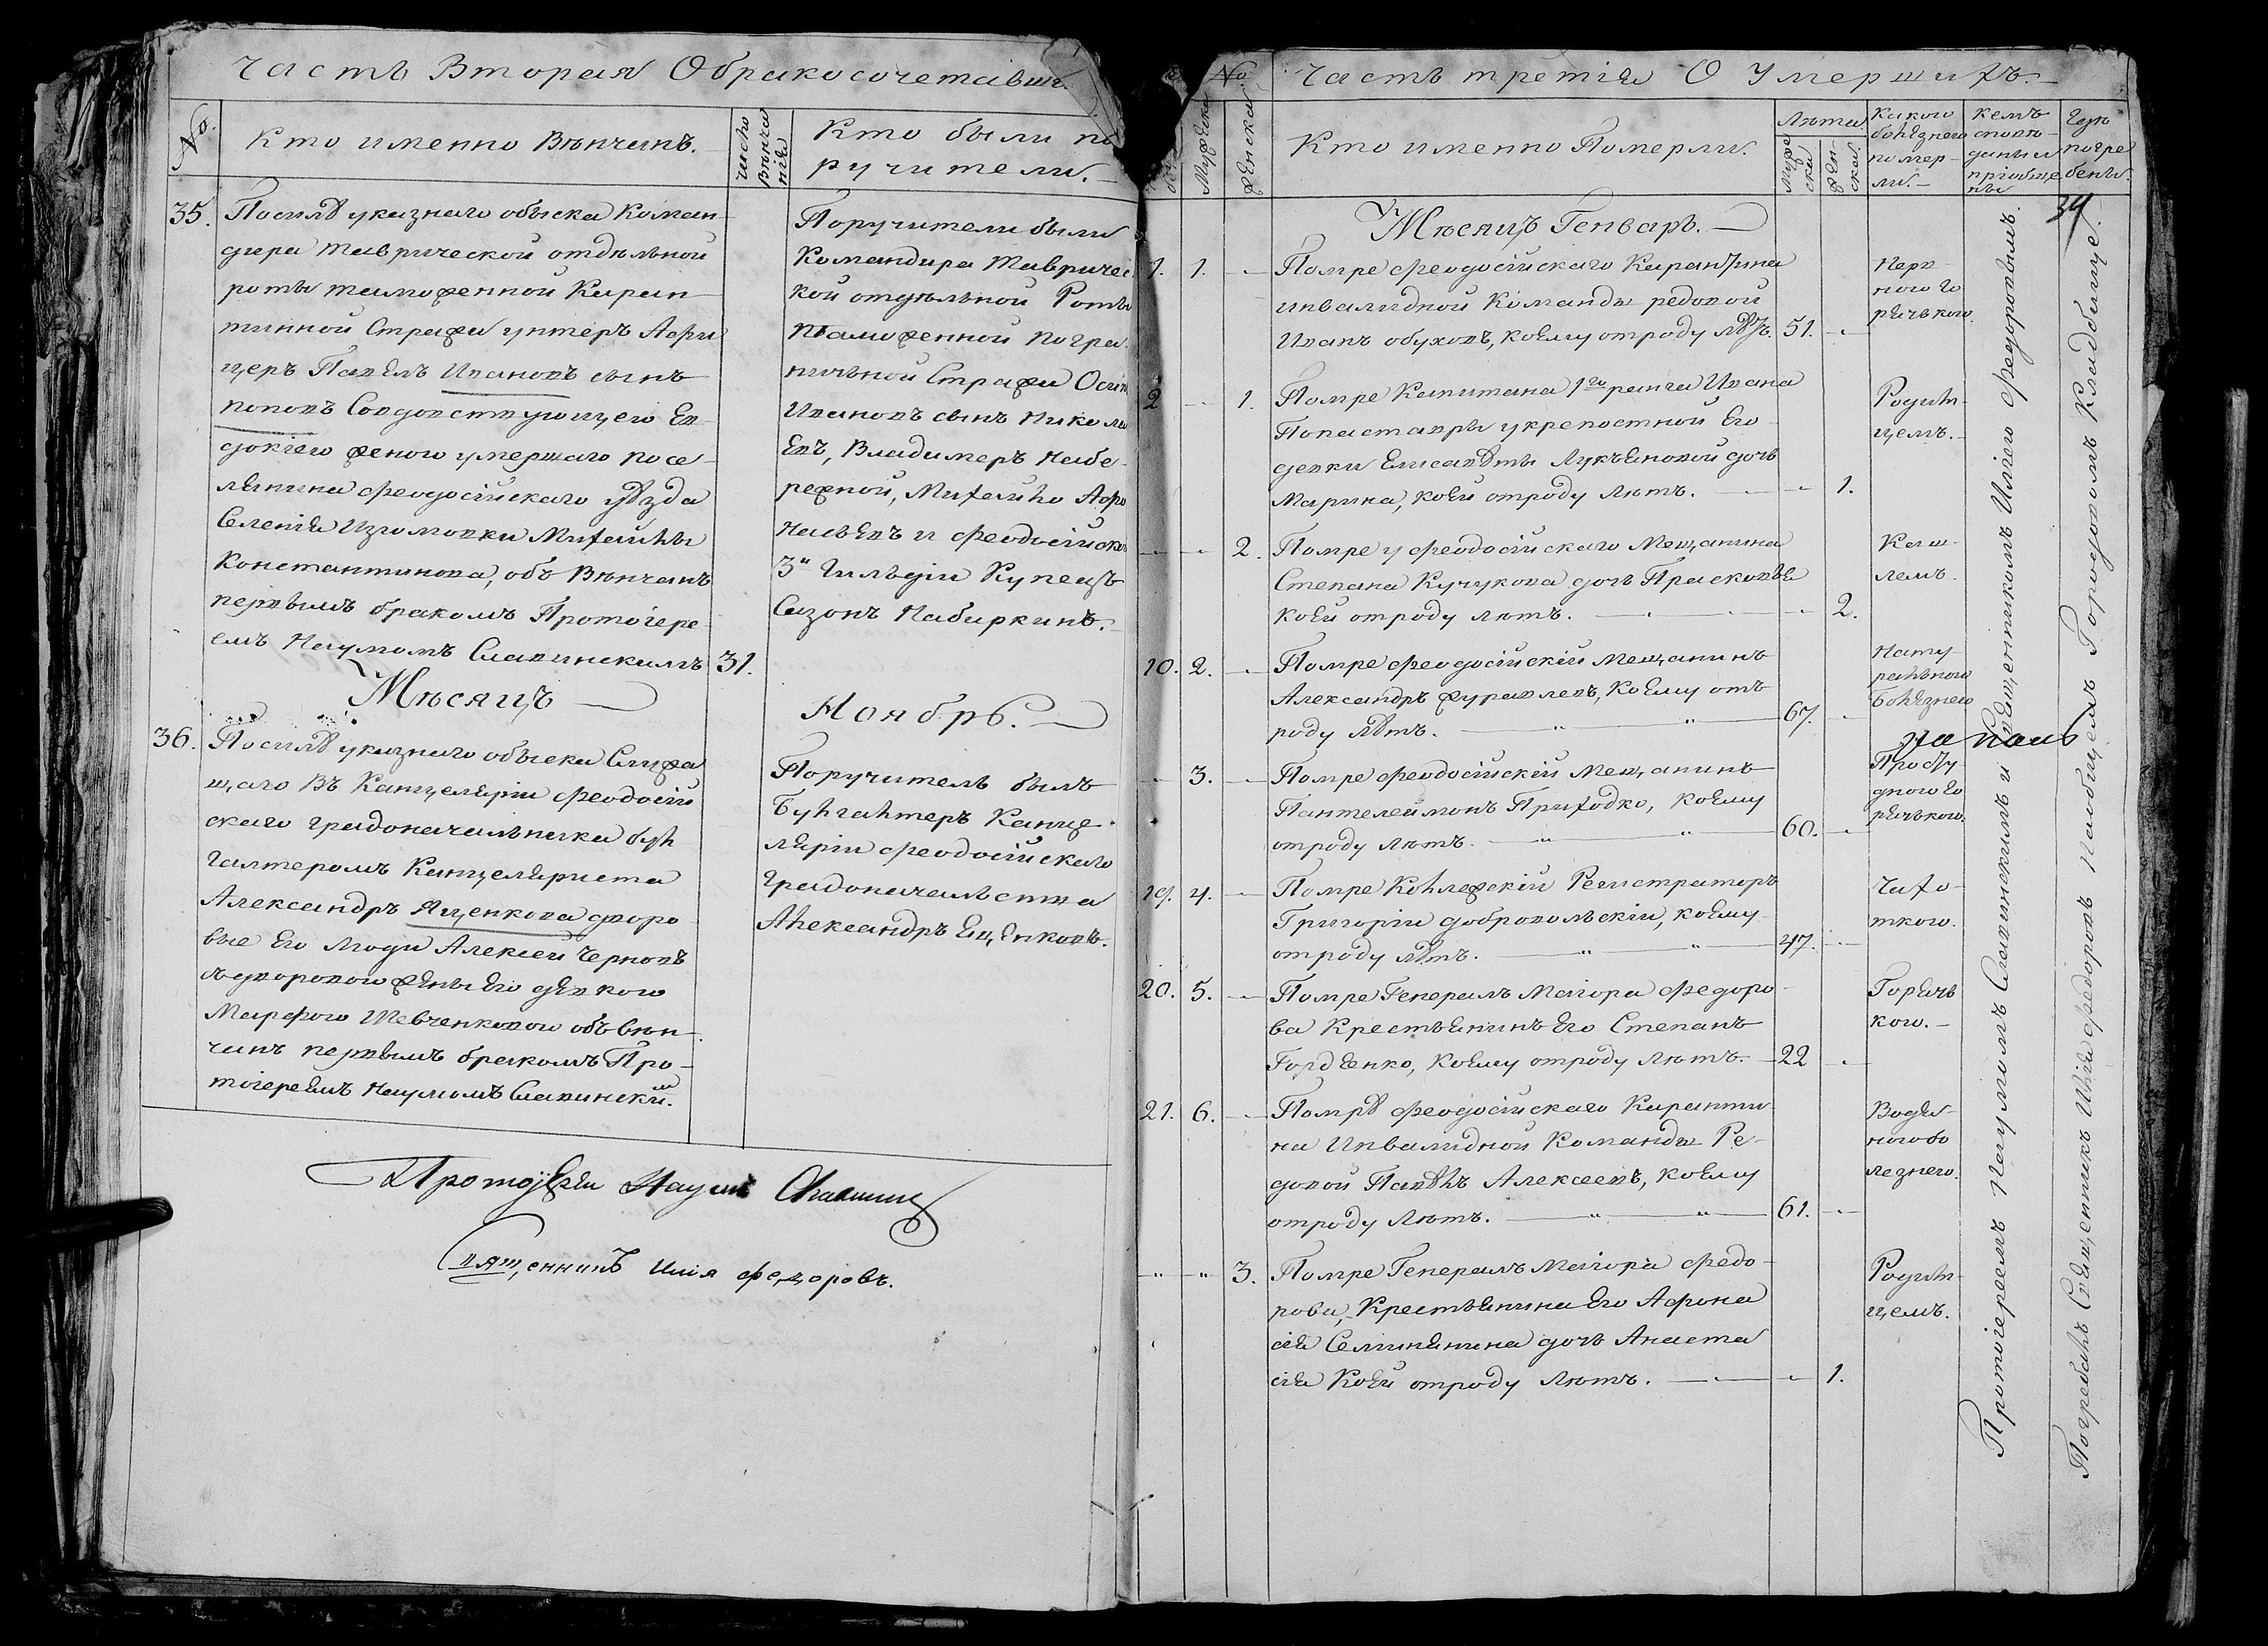 Часть Вторая О бракосочетавши
№
Кто именно Вѣнчанъ.
Число Вѣнча нія
Кто были по
ручители.
35.
По силѣ указнаго обыска Коман
дира Таврической отдѣльной
роты таможенной Каран
тинной Стражи унтеръ Афи
церъ Павелъ Ивановъ сынъ
Поповъ Совдовствующею Ев
докіею женою умершаго посе
лянина Феодосійскаго уѣзда
Селенія Изюмовки Михайлы
Константинова, объ Вѣнчанъ
первымъ бракомъ Протоіере
емъ Наумомъ Славинскимъ 31.
Поручители были
Командира Тавричес
кой отдѣльной Роты
Таможенной Погра
ничьной Стражи Осип
Ивановъ сынъ Никола
Евъ, Владимеръ Набе
режной, Михайло Афо
насьевъ и Феодосійской
3й Гильдіи Купецъ
Сазонъ Набиркинъ.
Мѣсяцъ
Ноябрь.
36.
По силѣ указнаго обыска Служа
щаго Въ Канцеляріи Феодосій
скаго градоначальника бух
галтеромъ Канцеляриста
Александръ Яценкова дворо
вые Его люди Алексей Черновъ
съ дворовою жены Его девкою
Марфою Шевченковою объ вѣн
чанъ первымъ бракомъ Про
тоіереемъ Наумомъ Славински.
Поручитель былъ
Бухгалтеръ Канце
ляріи Феодосійскаго
Градоначальства
Александръ Яценковъ.
Протоіерей Наумъ Славинс
Священникъ Илія Федоровъ.
№
Часть третія О Умершихъ.
Мужеска
Женска
Кто именно Померли.
Лѣта
Муже ска
Жен ска
Какою
болѣзнею
помер
ли.
Кемъ
спове
даны и
пріобще
ны
Где
погре
бены.
34
Мѣсяцъ Генварь.
1. 1. Помре Феодосійскаго Карантина
инвалидной Команды редовой
Иванъ Обуховъ, коему отроду лѣтъ. 51.
Нерв
ною го
рячькою.
2 1. Помре Капитана 1го ранга Ивана
Папаставры у крепостной Его
девки Елисаветы Лукьяновой дочь
Марина, коей отроду лѣтъ. 1.
Родим
цемъ.
2. Помре у Феодосійскаго Мещанина
Степана Кучукова дочь Прасковья
Коей отроду лѣтъ. 2.
Каш
лемъ.
10. 2. Помре Феодосійскій Мещанинъ
Александръ Журавлевъ, Коему отъ
роду лѣтъ. 67.
Нату
ральною
Болѣзнею
3. Помре Феодосійскій Мещанинъ
Пантелеймонъ Приходко, коему
отроду лѣтъ. 60.
Просту
дною го
рячькою.
19. 4. Помре Коллежскій Регистраторъ
Григорій Добровольскій, коему
отроду лѣтъ. 47.
Чахо
ткою.
20. 5. Помре Генералъ Маіора Федоро
ва Крестьянинъ Его Степанъ
Гордѣенко, Коему отроду лѣтъ. 22
Горячь
кою.
21. 6. Помрѣ Феодосійскаго Каранти
на Инвалидной Команды Ре
довой Павелъ Алексеевъ, коему
отроду лѣтъ. 61.
Водян
ною бо
лезнею.
3. Помре Генералъ Маіора Федо
рова, Крестьянина Его Афона
сія Семинянина дочь Анаста
сія Коей отроду лѣтъ. 1.
Родим
цемъ.
Протоіереемъ Наумомъ Славинскимъ и Священникомъ Иліею Федоровымъ.
Погребалъ Священникъ Илія Федоровъ на общемъ Городовомъ Кладбище.